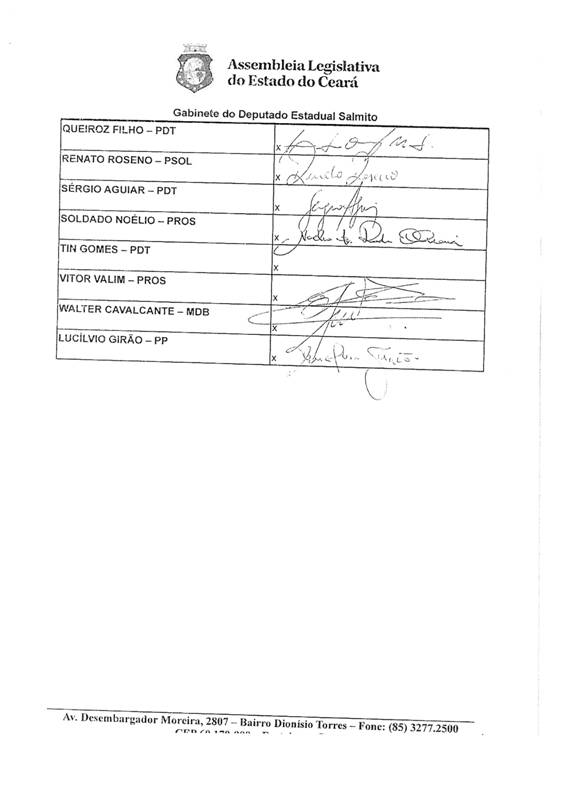 Assembleia Legislativa
do Estado do Ceará
Gabinete do Deputado Estadual Salmito
QUEIROZ FILHO – PDT
x
RENATO ROSENO – PSOL
x Renato Roseno
SÉRGIO AGUIAR – PDT
x
SOLDADO NOÉLIO – PROS
x
TIN GOMES – PDT
x
VITOR VALIM – PROS
x
WALTER CAVALCANTE – MDB
x
LUCÍLVIO GIRÃO – PP
x
Av. Desembargador Moreira, 2807 – Bairro Dionísio Torres – Fone: (85) 3277.2500